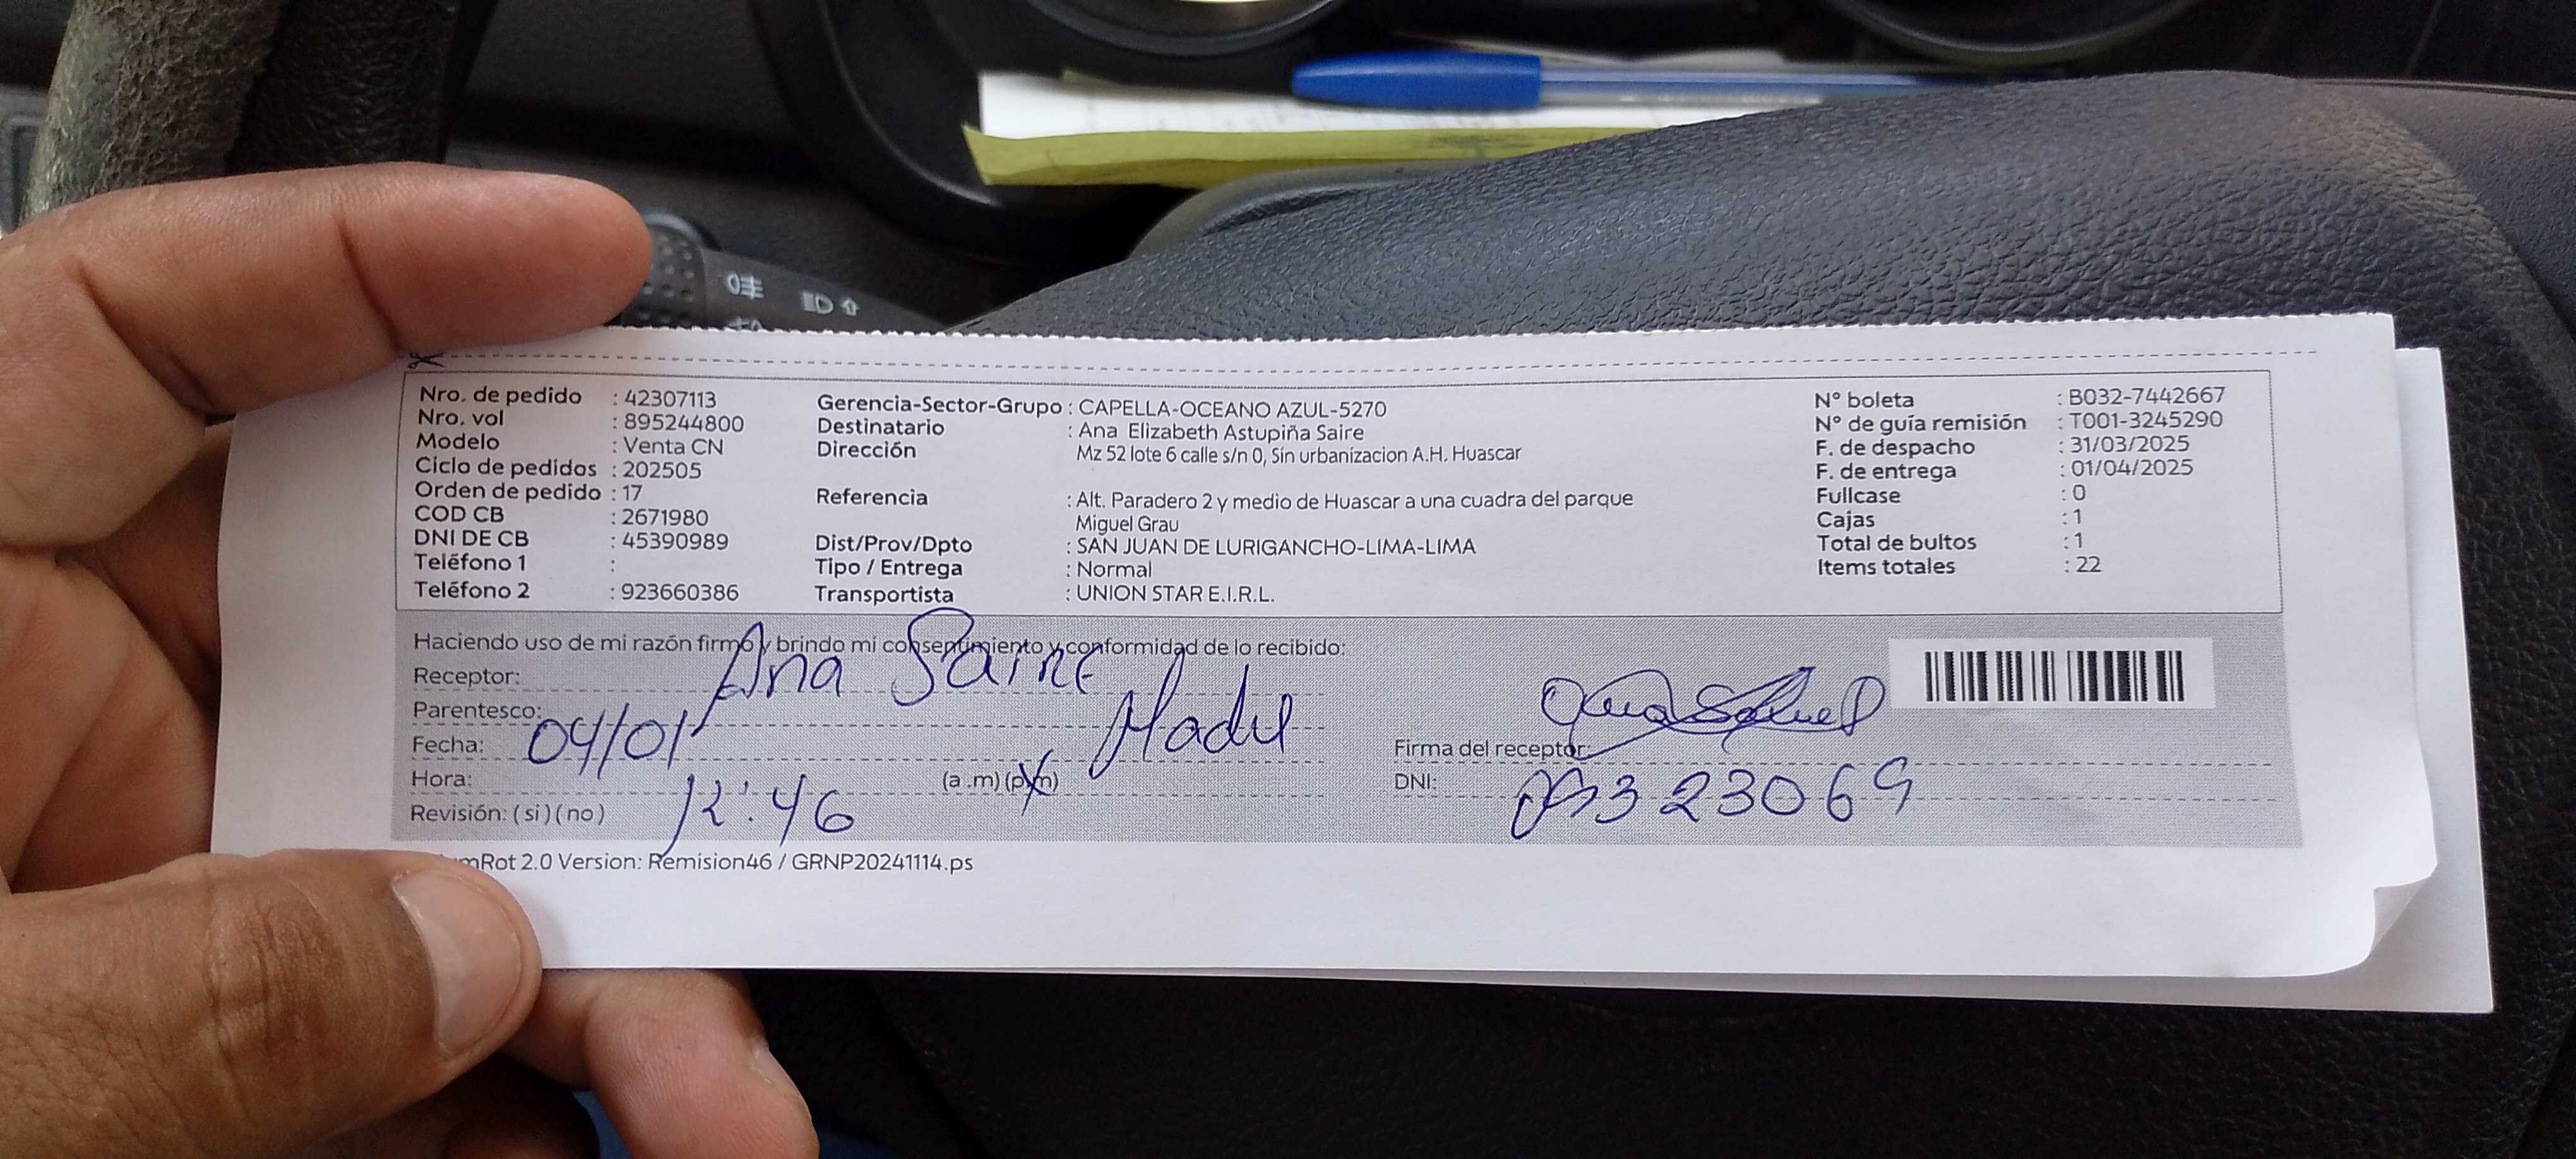 Nro. de pedido : 42307113
Nro. vol : 895244800
Modelo : Venta CN
Ciclo de pedidos : 202505
Orden de pedido : 17
COD CB : 2671980
DNI DE CB : 45390989
Teléfono 1 :
Teléfono 2 : 923660386
Gerencia-Sector-Grupo : CAPELLA-OCEANO AZUL-5270
Destinatario : Ana Elizabeth Astupiña Saire
Dirección Mz 52 lote 6 calle s/n 0, Sin urbanizacion A.H. Huascar
Referencia : Alt. Paradero 2 y medio de Huascar a una cuadra del parque
Miguel Grau
Dist/Prov/Dpto : SAN JUAN DE LURIGANCHO-LIMA-LIMA
Tipo / Entrega : Normal
Transportista : UNION STAR E.I.R.L.
N° boleta : B032-7442667
N° de guía remisión : T001-3245290
F. de despacho : 31/03/2025
F. de entrega : 01/04/2025
Fullcase : 0
Cajas : 1
Total de bultos : 1
Items totales : 22
Haciendo uso de mi razón firmo y brindo mi consentimiento y conformidad de lo recibido:
Receptor: Ana Saire
Parentesco:
Fecha: 04/01
Hora: 12:46 (a.m) (p.m)
Revisión: ( si ) ( no )
Firma del receptor:
DNI:
mRot 2.0 Version: Remision46 / GRNP20241114.ps